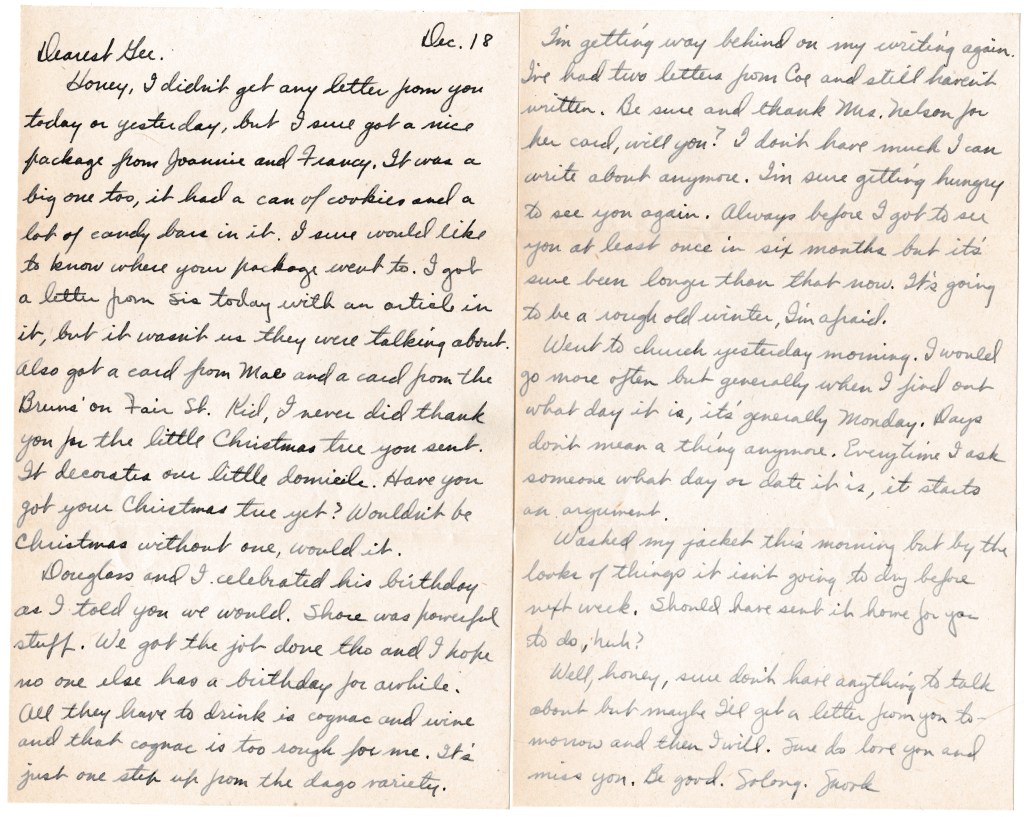 Dec. 18
Dearest Gee.
Honey, I didn't get any letter from you
today or yesterday, but I sure got a nice
package from Joannie and Francy. It was a
big one too, it had a can of cookies and a
lot of candy bars in it. I sure would like
to know where your package went to. I got
a letter from Sis today with an article in
it, but it wasn't us they were talking about.
Also got a card from Mae and a card from the
Bruns' on Fair St. Kid, I never did thank
you for the little Christmas tree you sent.
It decorates our little domicile. Have you
got your Christmas tree yet? Wouldn't be
Christmas without one, would it.
Douglass and I celebrated his birthday
as I told you we would. Shore was powerful
stuff. We got the job done tho and I hope
no one else has a birthday for awhile.
All they have to drink is cognac and wine
and that cognac is too rough for me. It's
just one step up from the dago variety.
I'm getting way behind on my writing again.
I've had two letters from Coe and still haven't
written. Be sure and thank Mrs. Nelson for
her card, will you? I don't have much I can
write about anymore. I'm sure getting hungry
to see you again. Always before I got to see
you at least once in six months but it's
sure been longer than that now. It's going
to be a rough old winter, I'm afraid.
Went to church yesterday morning. I would
go more often but generally when I find out
what day it is, it's generally Monday. Days
don't mean a thing anymore. Everytime I ask
someone what day or date it is, it starts
an argument.
Washed my jacket this morning but by the
looks of things it isn't going to dry before
next week. Should have sent it home for you
to do, huh?
Well, honey, sure don't have anything to talk
about but maybe I'll get a letter from you to-
morrow and then I will. Sure do love you and
miss you. Be good. Solong. Snook